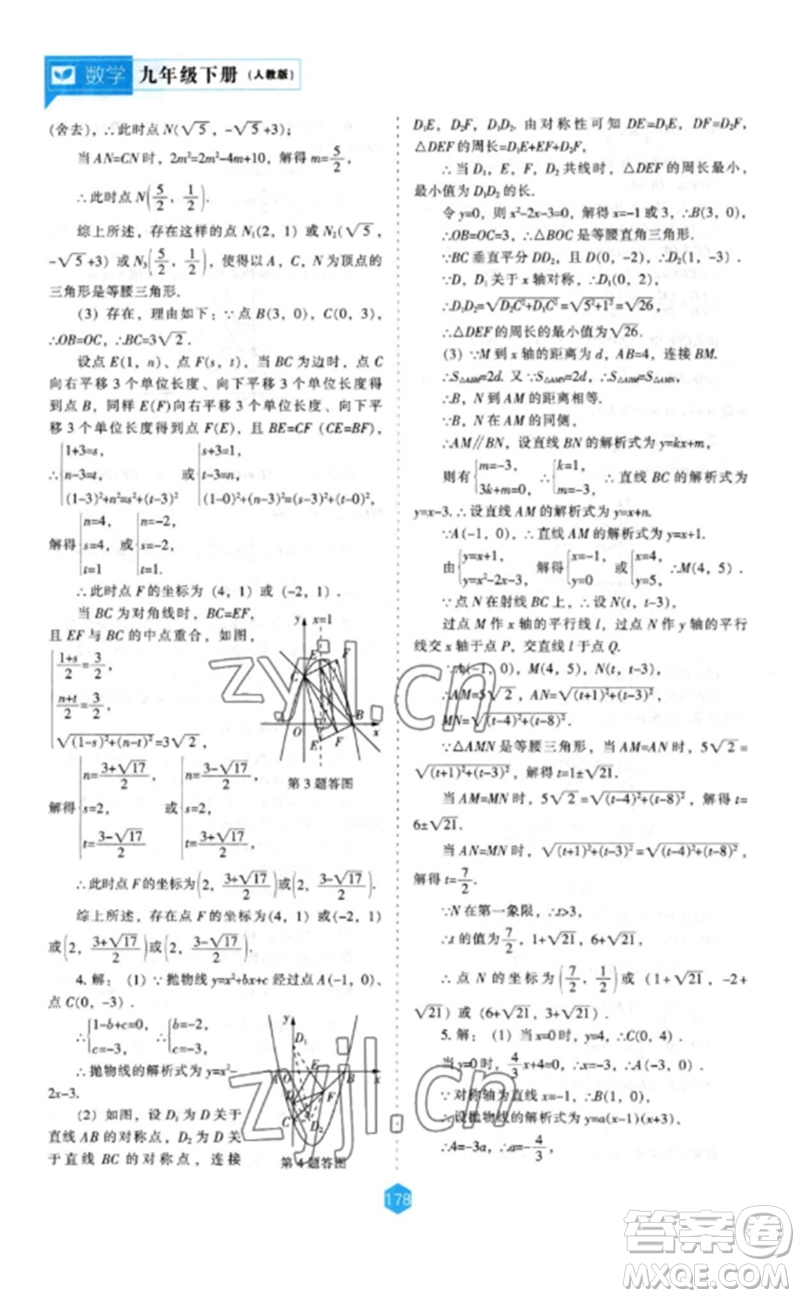 数学 九年级下册 (人教版)
(舍去), ∴此时点 N(√5, -√5+3);
当 AN=CN 时, 2m²=2m²-4m+10, 解得 m=5/2,
∴此时点 N(5/2, 1/2).
综上所述, 存在这样的点 N₁(2, 1) 或 N₂(√5,
-√5+3) 或 N₃(5/2, 1/2), 使得以 A, C, N 为顶点的
三角形是等腰三角形.
(3) 存在, 理由如下: ∵点 B(3, 0), C(0, 3),
∴OB=OC, ∴BC=3√2.
设点 E(1, n)、点 F(s, t), 当 BC 为边时, 点 C
向右平移 3 个单位长度、向下平移 3 个单位长度得
到点 B, 同样 E(F)向右平移 3 个单位长度、向下平
移 3 个单位长度得到点 F(E), 且 BE=CF (CE=BF),
∴{1+3=s, n-3=t, (1-3)²+n²=s²+(t-3)² 或 {s+3=1, t-3=n, (1-0)²+(n-3)²=(s-3)²+(t-0)²,
解得{n=4, s=4, t=1 或 {n=-2, s=-2, t=1.
∴此时点 F 的坐标为 (4, 1) 或 (-2, 1).
当 BC 为对角线时, BC=EF,
且 EF 与 BC 的中点重合, 如图,
{(1+s)/2=3/2, (n+t)/2=3/2, √((1-s)²+(n-t)²)=3√2,
y x=1 E F C O B x E F
第 3 题答图
解得{n=(3+√17)/2, s=2, t=(3-√17)/2 或 {n=(3-√17)/2, s=2, t=(3+√17)/2
∴此时点 F 的坐标为(2, (3+√17)/2)或(2, (3-√17)/2).
综上所述, 存在点 F 的坐标为(4, 1)或(-2, 1)
或(2, (3+√17)/2)或(2, (3-√17)/2).
4. 解: (1) ∵抛物线 y=x²+bx+c 经过点 A(-1, 0)、
点 C(0, -3).
∴{1-b+c=0, c=-3, ∴{b=-2, c=-3.
∴抛物线的解析式为 y=x²-
2x-3.
(2) 如图, 设 D₁ 为 D 关于
直线 AB 的对称点, D₂ 为 D 关
于直线 BC 的对称点, 连接
第 4 题答图
D₁E, D₂F, D₁D₂. 由对称性可知 DE=D₁E, DF=D₂F,
△DEF 的周长=D₁E+EF+D₂F,
∴当 D₁, E, F, D₂ 共线时, △DEF 的周长最小,
最小值为 D₁D₂ 的长.
令 y=0, 则 x²-2x-3=0, 解得 x=-1 或 3, ∴B(3, 0),
∴OB=OC=3, ∴△BOC 是等腰直角三角形.
∵BC 垂直平分 DD₂, 且 D(0, -2), ∴D₂(1, -3).
∵D, D₁ 关于 x 轴对称, ∴D₁(0, 2),
∴D₁D₂=√(D₂C²+D₁C²)=√(5²+1²)=√26,
∴△DEF 的周长的最小值为√26.
(3) ∵M 到 x 轴的距离为 d, AB=4, 连接 BM.
∴S△ABM=2d. 又∵S△AMN=2d, ∴S△ABM=S△AMN,
∴B, N 到 AM 的距离相等.
∵B, N 在 AM 的同侧,
∴AM∥BN, 设直线 BN 的解析式为 y=kx+m,
则有{m=-3, 3k+m=0, ∴{k=1, m=-3. ∴直线 BC 的解析式为
y=x-3. ∴设直线 AM 的解析式为 y=x+n.
∵A(-1, 0), ∴直线 AM 的解析式为 y=x+1.
由{y=x+1, y=x²-2x-3, 解得{x=-1, y=0 或 {x=4, y=5, ∴M(4, 5).
∵点 N 在射线 BC 上, ∴设 N(t, t-3).
过点 M 作 x 轴的平行线 l, 过点 N 作 y 轴的平行
线交 x 轴于点 P, 交直线 l 于点 Q.
∵A(-1, 0), M(4, 5), N(t, t-3),
∴AM=5√2, AN=√((t+1)²+(t-3)²),
MN=√((t-4)²+(t-8)²).
∵△AMN 是等腰三角形, 当 AM=AN 时, 5√2=
√((t+1)²+(t-3)²), 解得 t=1±√21.
当 AM=MN 时, 5√2=√((t-4)²+(t-8)²), 解得 t=
6±√21.
当 AN=MN 时, √((t+1)²+(t-3)²)=√((t-4)²+(t-8)²),
解得 t=7/2.
∵N 在第一象限, ∴t>3,
∴t 的值为7/2, 1+√21, 6+√21,
∴点 N 的坐标为(7/2, 1/2)或 (1+√21, -2+
√21) 或 (6+√21, 3+√21).
5. 解: (1) 当 x=0 时, y=4, ∴C(0, 4).
当 y=0 时, 4/3x+4=0, ∴x=-3, ∴A(-3, 0).
∵对称轴为直线 x=-1, ∴B(1, 0),
∴设抛物线的解析式为 y=a(x-1)(x+3),
∴4=-3a, ∴a=-4/3,
178
zyjl.cn
zyjl.cn
答案卷
MXQE.COM